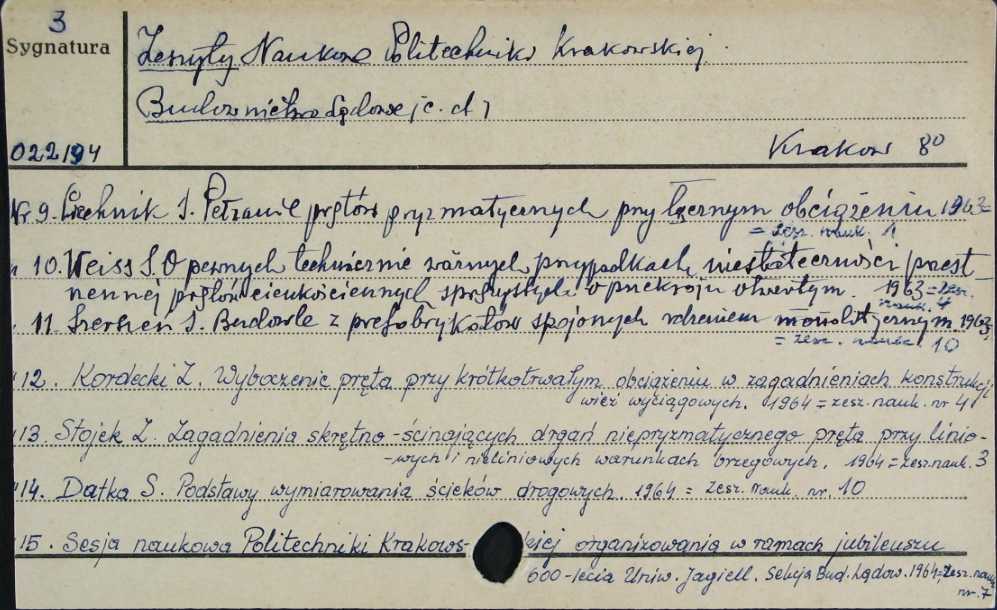 3
Sygnatura
Zeszyty Naukowe Politechniki Krakowskiej
Budownictwo Lądowe j c. d 1
022194
Krakow 8º
Nr 9. Piechnik S. Pełzanie prętów pryzmatycznych przy łącznym obciążeniu 1963
= zesz. nauk. 1
" 10. Weiss S. O pewnych technicznie ważnych przypadkach niestateczności przest-
rzennej prętów cienkościennych sprężystych o przekroju otwartym. 1963 = zesz.
nauk. 4
" 11. S. Budowle z prefabrykatów spojonych rdzeniem monolitycznym. 1963
= zesz. nauk. 10
" 12. Kordecki Z. Wyboczenie pręta przy krótkotrwałym obciążeniu w zagadnieniach konstrukcji
wież wyciągowych. 1964 = zesz. nauk. nr 4
" 13. Stojek Z. Zagadnienia skrętno-ścinających drgań niepryzmatycznego pręta przy linio-
-wych i nieliniowych warunkach brzegowych. 1964 = zesz. nauk. 3
" 14. Datka S. Podstawy wymiarowania ścieków drogowych. 1964 = zesz. nauk. nr. 10
" 15. Sesja naukowa Politechniki Krakows- kiej organizowania w ramach jubileuszu
600-lecia Uniw. Jagiell. Sekcja Bud. Lądow. 1964 = zesz. nauk
nr. 7